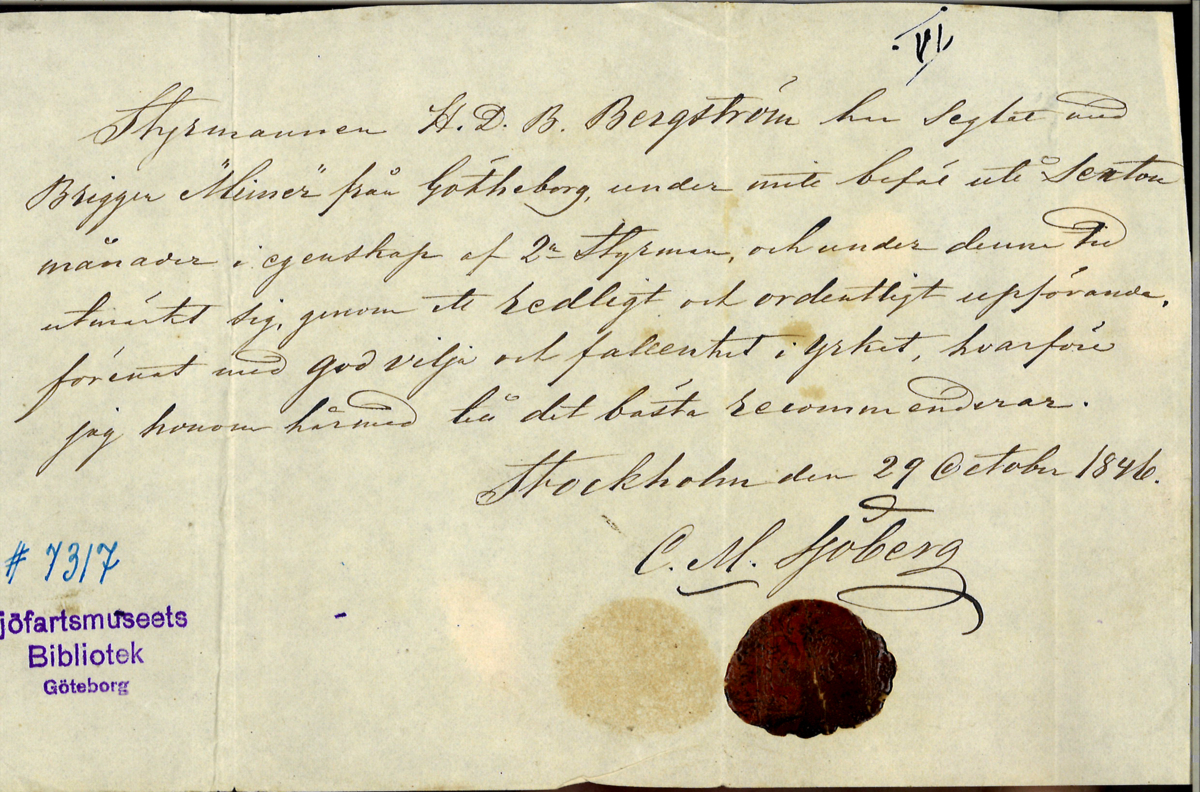 VI.
Styrmannen H. D. B. Bergström har Seglat med
Brigger "Minner" från Götheborg, under mitt befäl uti Sexton
månader i egenskap af 2n Styrman, och under denne tid
utmärkt sig, genom ett redligt och ordentligt uppförande,
förenat med god vilja och fallenhet i yrket, hvarföre
jag honom härmed till det bästa recommenderar.
Stockholm den 29 October 1846.
C. M. Sjöberg
# 7317
jöfartsmuseets
Bibliotek
Göteborg